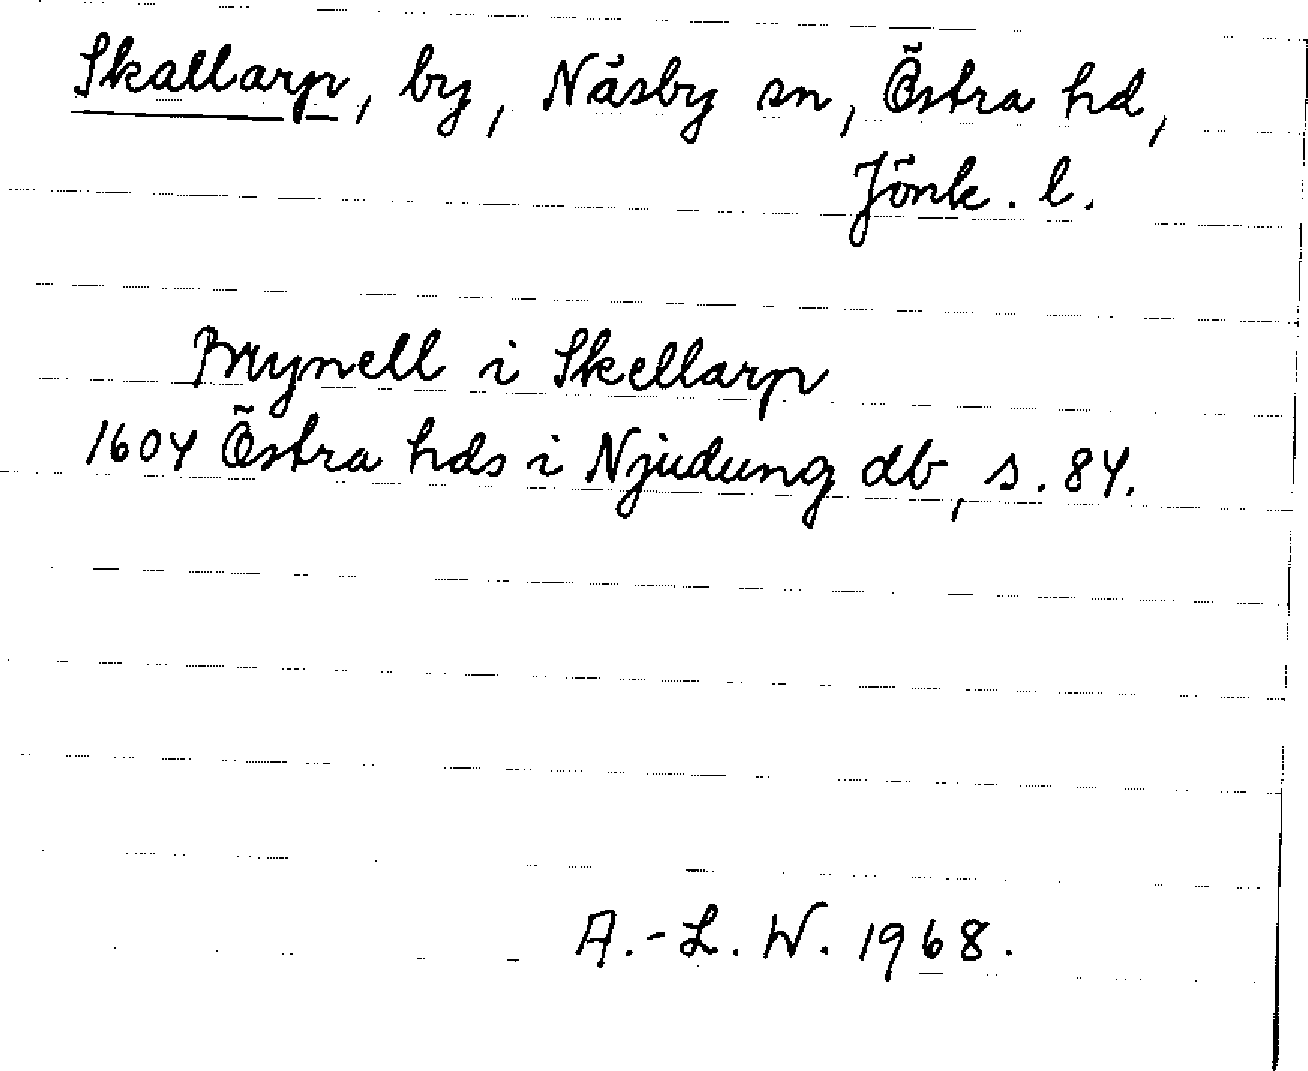 Skallarp, by, Näsby sn, Östra hd,
Jönk. l.
Brynell i Skellarp
1604 Östra hds i Njudung db, s. 84.
A.-L. W. 1968.